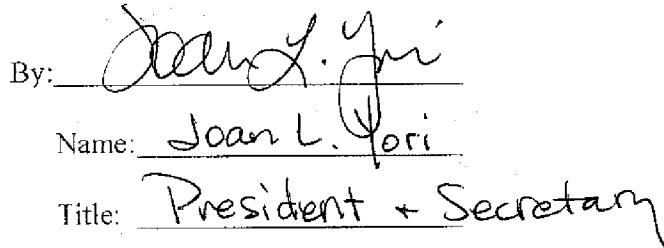 By: Joan L. Yori
Name: Joan L. Yori
Title: President + Secretary